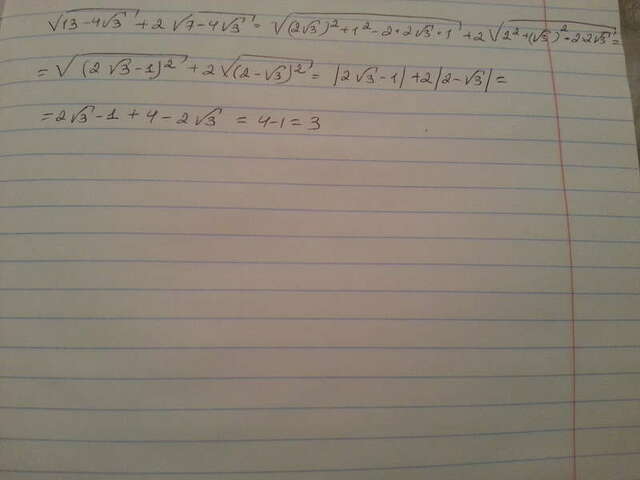 √(13-4√3) + 2√(7-4√3) = √((2√3)²+1²-2·2√3·1) + 2√(2²+(√3)²-2·2√3) =
= √((2√3-1)²) + 2√((2-√3)²) = |2√3-1| + 2|2-√3| =
= 2√3-1 + 4-2√3 = 4-1 = 3